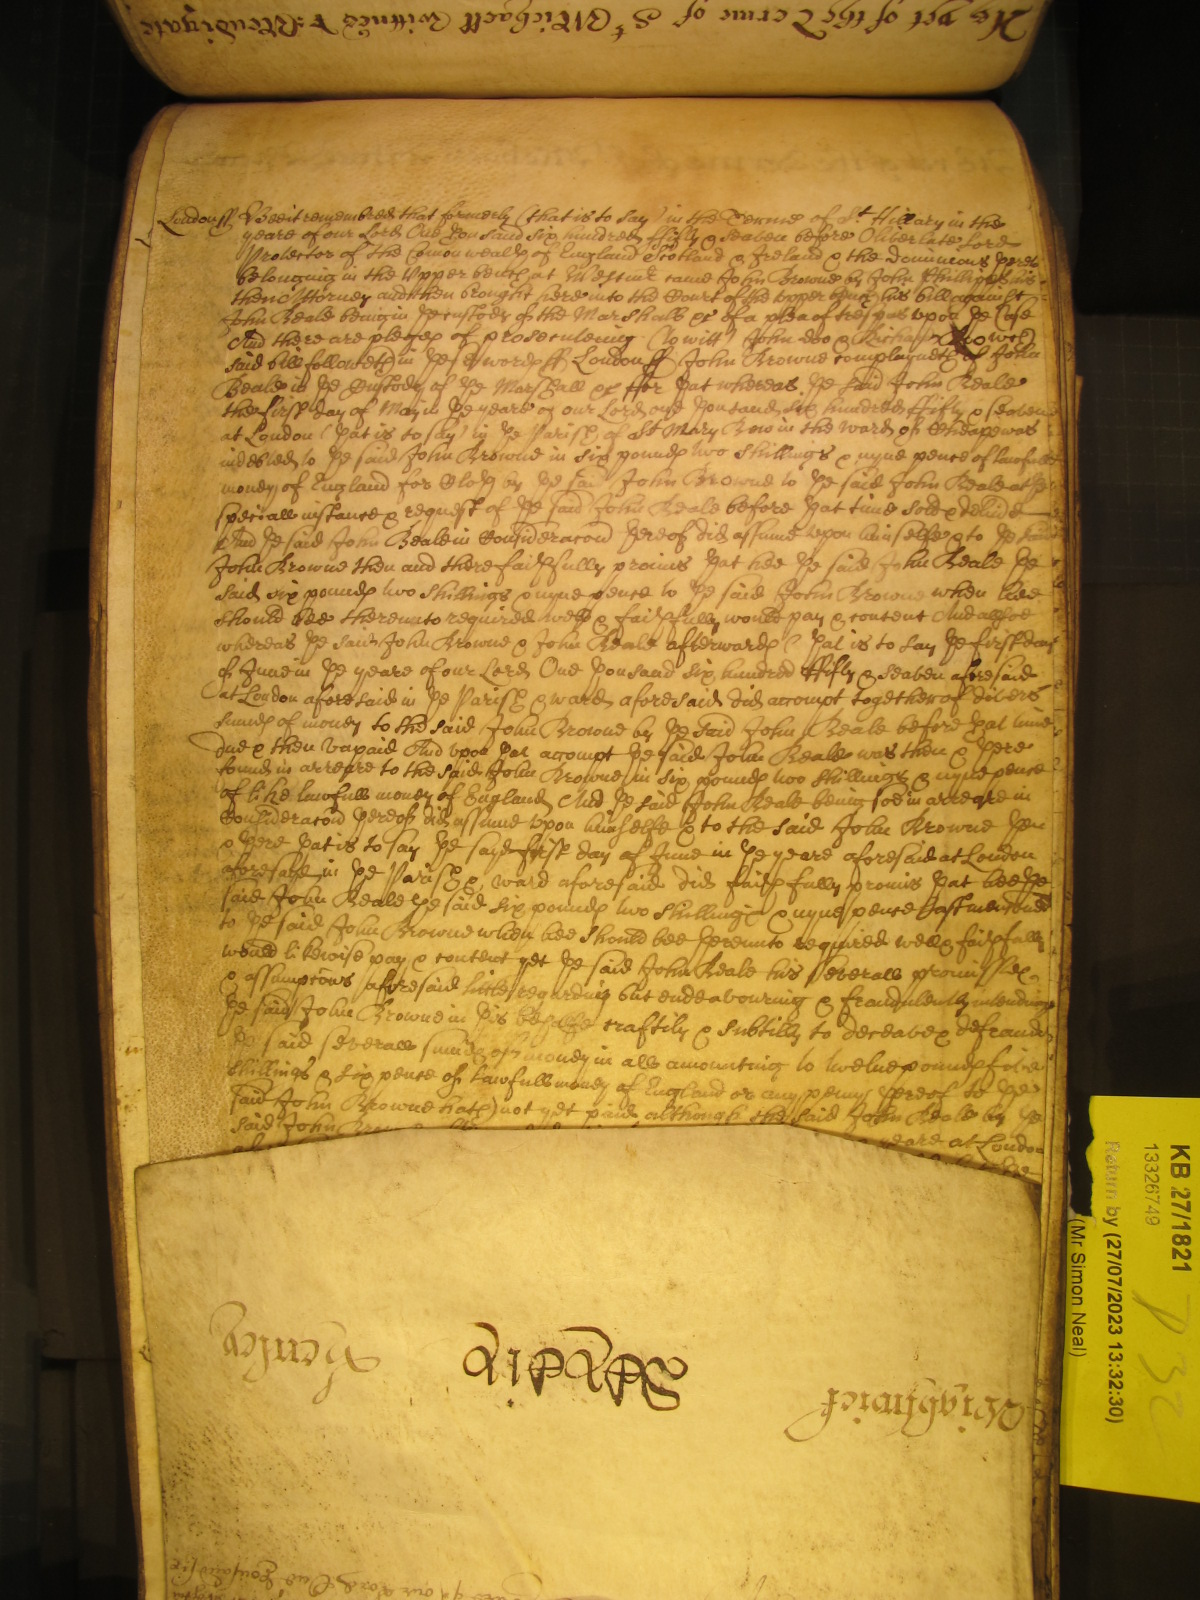 He yet of the Terme of St Michaell wittnes
London ss Bee it remembred that formerly (that is to say) in the Terme of St Hillary in the
yeare of our Lord One thousand six hundred ffifty & seaven before Oliver late Lord
Protector of the Comonwealth of England Scotland & Ireland & the dominions thereto
belonging in the Upper bench at Westmr came John Browne by John Phillipps his
then Attorney and then brought here into the Court of the upper bench his bill against
John Beale being in the custody of the Marshall &c of a plea of trespas upon the Case
And there are pledges of prosecuteing (to witt) John doo & Richard Roo wch
said bill followeth in these words ss London ss John Browne complayneth of John
Beale in the Custody of the Marshall &c ffor that whereas the said John Beale
the first day of May in the yeare of our Lord one thousand six hundred ffifty & seaven
at London (that is to say) in the Parish of St Mary Bow in the ward of Cheape was
indebted to the said John Browne in six pounds two shillings & nyne pence of lawfull
money of England for Cloth by the said John Browne to the said John Beale at the
speciall instance & request of the said John Beale before that time sold & delived
And the said John Beale in Consideracon thereof did assume upon himselfe & to the said
John Browne then and there faithfully promis that hee the said John Beale the
said six pounds two shillings & nyne pence to the said John Browne when hee
should bee thereunto required well & faithfully would pay & content And alsoe
whereas the said John Browne & John Beale afterwards (that is to say the first day
of June in the yeare of our Lord One thousand six hundred ffifty & seaven aforesaid
at London aforesaid in the Parish & ward aforesaid did accompt together of divers
sumes of money to the said John Browne by the said John Beale before that time
due & then unpaid And upon that accompt the said John Beale was then & there
found in arreare to the said John Browne in six pounds two shillings & nyne pence
of like lawfull money of England And the said John Beale being soe in arreare in
Consideracon thereof did assume upon himselfe & to the said John Browne then
& there that is to say the said first day of June in the yeare aforesaid at London
aforesaid in the Parish & ward aforesaid did faithfully promis that hee the
said John Beale the said six pounds two shillings & nyne pence last menconed
to the said John Browne when hee should bee thereunto required well & faithfully
would likewise pay & content yet the said John Beale his severall promisses
& assumpcons aforesaid little regarding but endeavouring & fraudulently intending
the said John Browne in this behalfe craftily & subtilly to deceave & defraud
the said severall sumes of money in all amounting to twelve pounds five
shillings & six pence of lawfull money of England or any penny thereof to the
said John Browne hath not yet paid although the said John Beale by the
said John
yeare at London
Wightwick
Henley
KB 27/1821
13326749
Return by (27/07/2023 13:32:30)
(Mr Simon Neal)
P 32